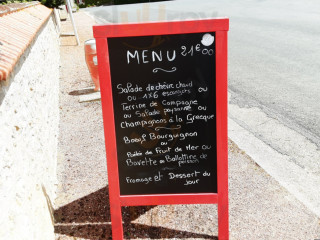 MENU 21€00
Salade de chèvre chaud
ou 1x6 escargots ou
Terrine de Campagne
ou Salade paysanne ou
Champignons à la Grecque
Boeuf Bourguignon
ou
de Fruit de Mer ou
Bavette ou Ballottine de
poisson
Fromage et Dessert du
jour